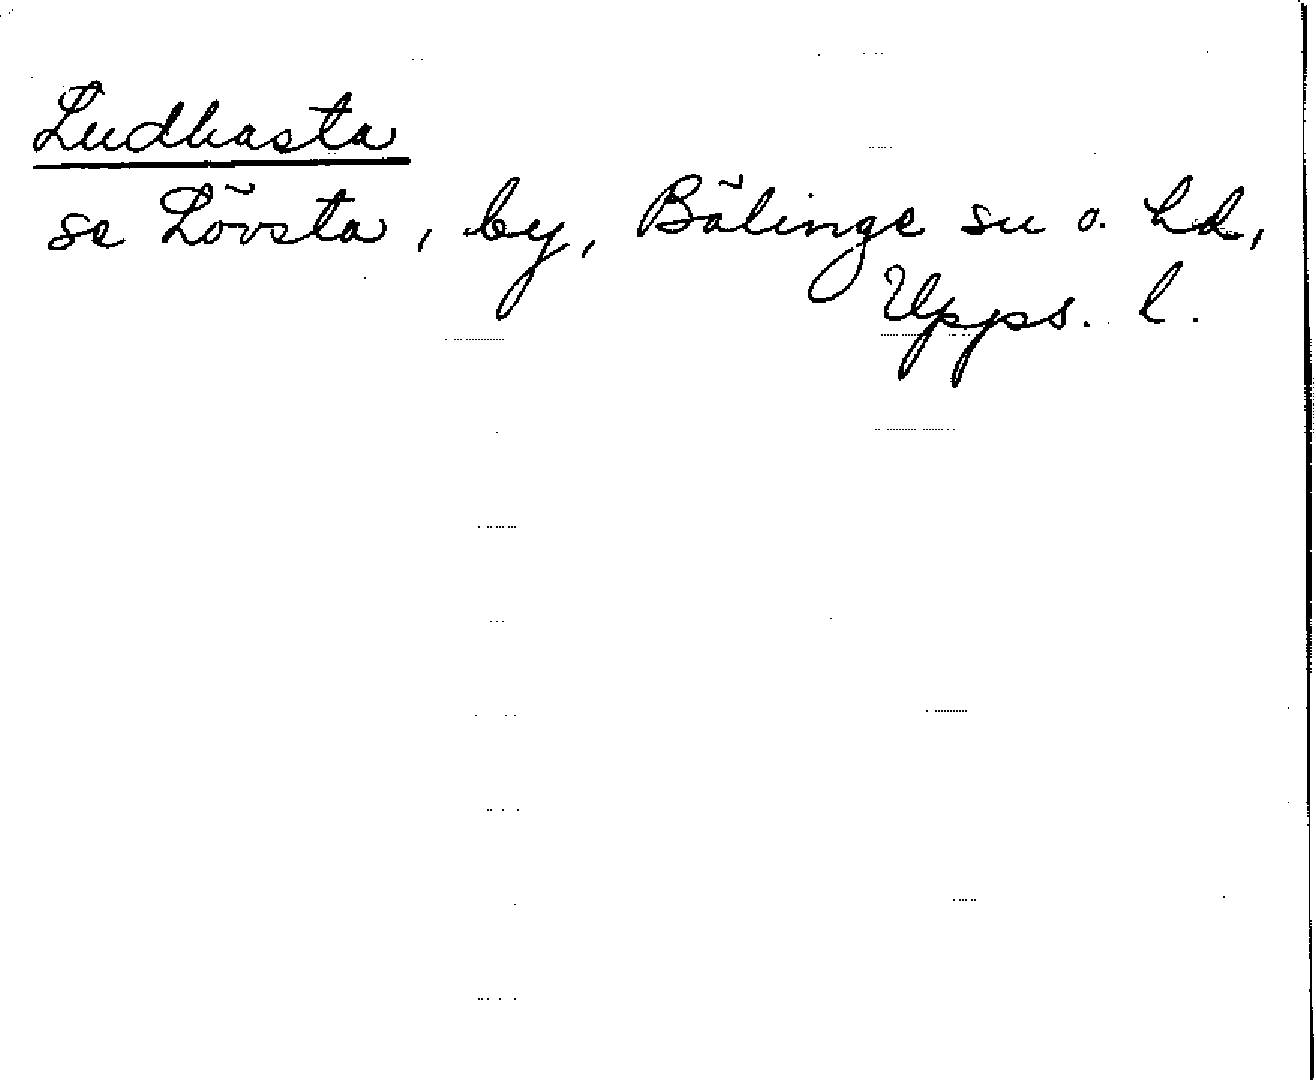 Ludhasta
se Lövsta, by, Bälinge sn o. hd,
Upps. l.